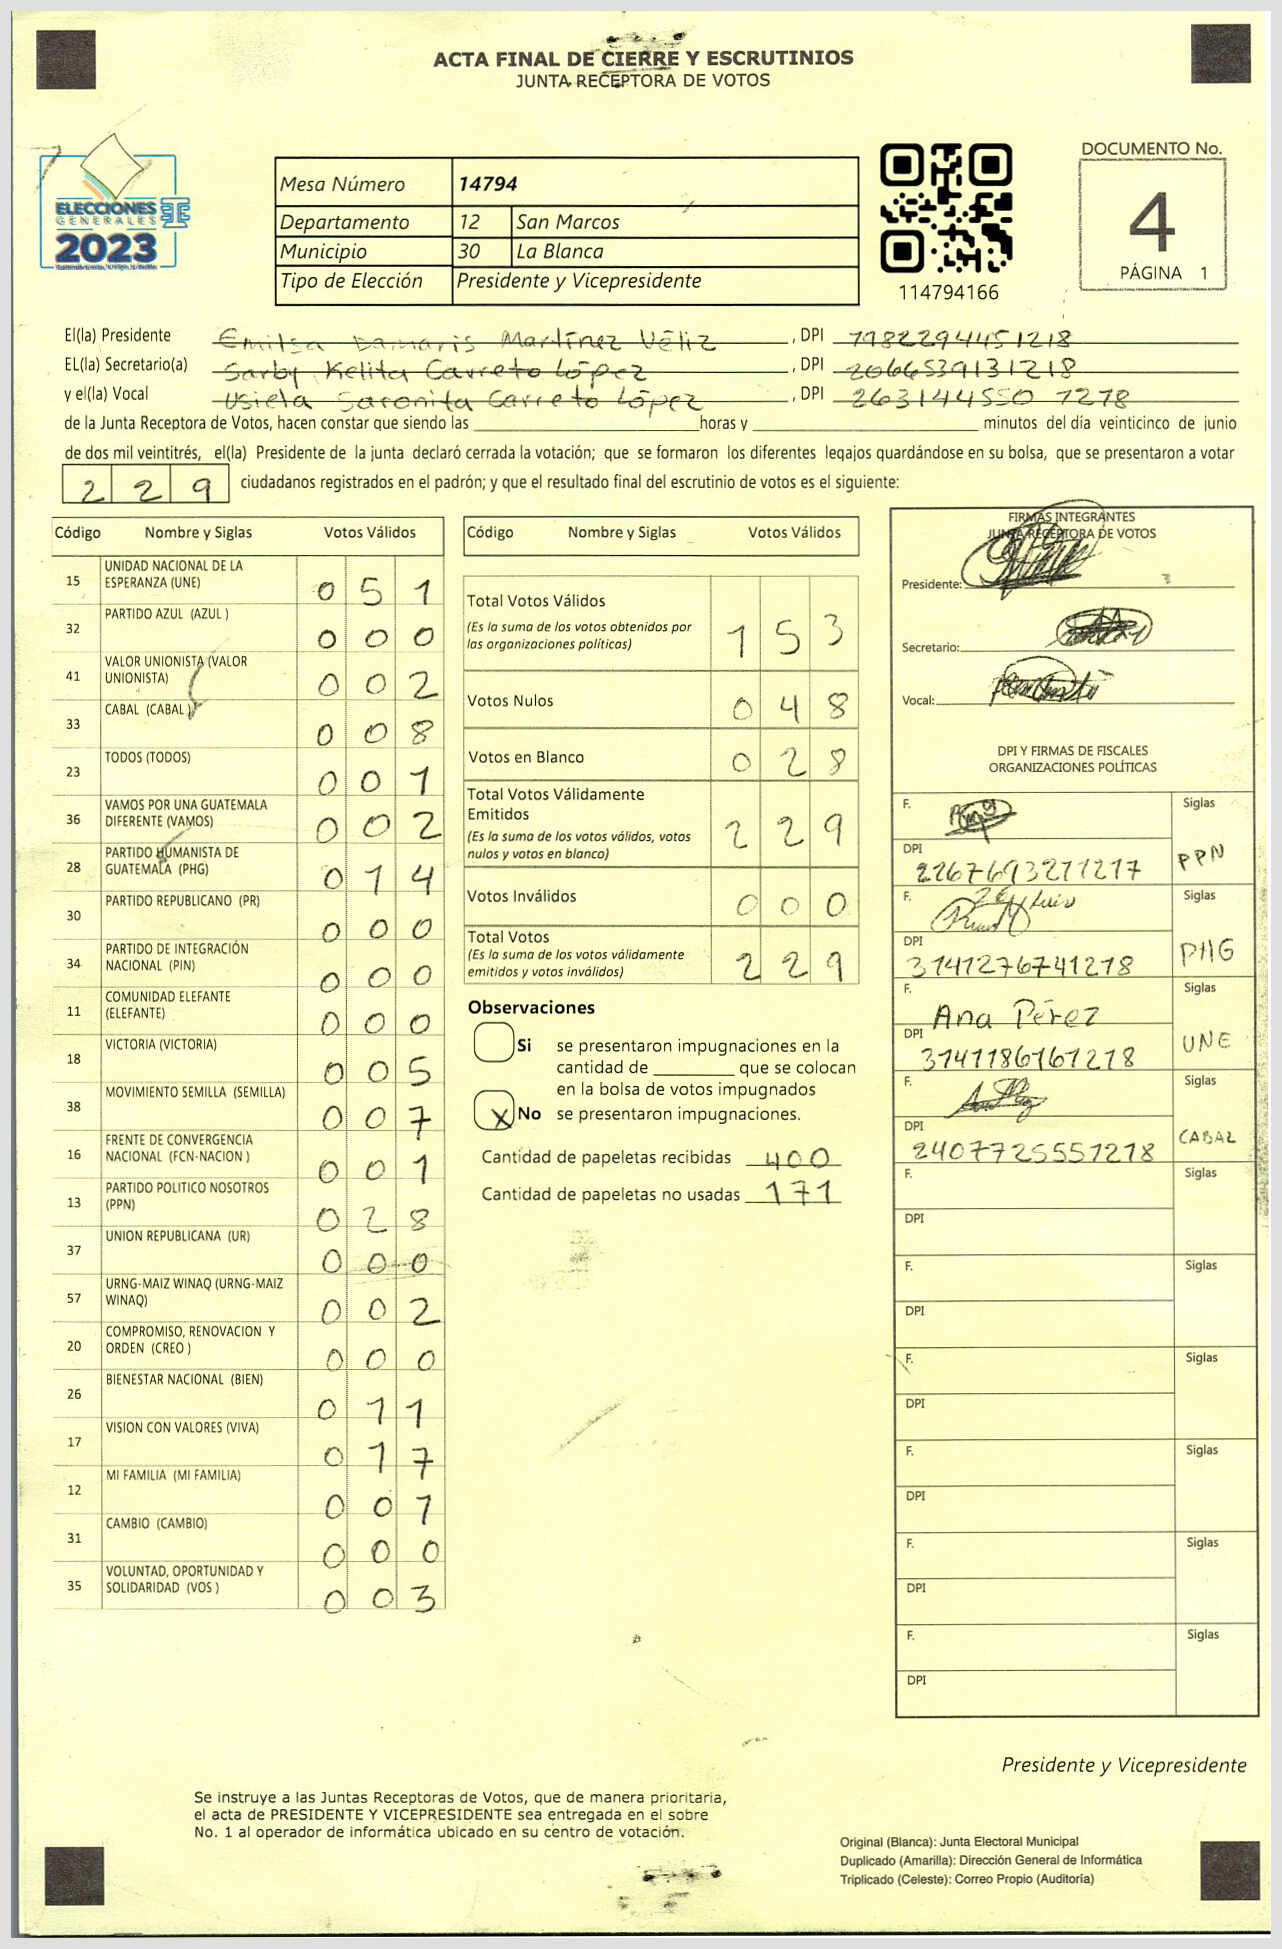 ACTA FINAL DE CIERRE Y ESCRUTINIOS
JUNTA RECEPTORA DE VOTOS
ELECCIONES
GENERALES
2023
Mesa Número 14794
Departamento 12 San Marcos
Municipio 30 La Blanca
Tipo de Elección Presidente y Vicepresidente
114794166
DOCUMENTO No.
4
PÁGINA 1
El(la) Presidente Emilsa Damaris Martínez Véliz, DPI
EL(la) Secretario(a) Sarby Kelita Carreto López, DPI 2066539131218
y el(la) Vocal Saronita Carreto López, DPI
de la Junta Receptora de Votos, hacen constar que siendo las horas y minutos del día veinticinco de junio
de dos mil veintitrés, el(la) Presidente de la junta declaró cerrada la votación; que se formaron los diferentes legajos guardándose en su bolsa, que se presentaron a votar
229 ciudadanos registrados en el padrón; y que el resultado final del escrutinio de votos es el siguiente:
Código Nombre y Siglas Votos Válidos
15 UNIDAD NACIONAL DE LA ESPERANZA (UNE) 051
32 PARTIDO AZUL (AZUL ) 000
41 VALOR UNIONISTA (VALOR UNIONISTA) 002
33 CABAL (CABAL ) 008
23 TODOS (TODOS) 001
36 VAMOS POR UNA GUATEMALA DIFERENTE (VAMOS) 002
28 PARTIDO HUMANISTA DE GUATEMALA (PHG) 014
30 PARTIDO REPUBLICANO (PR) 000
34 PARTIDO DE INTEGRACIÓN NACIONAL (PIN) 000
11 COMUNIDAD ELEFANTE (ELEFANTE) 000
18 VICTORIA (VICTORIA) 005
38 MOVIMIENTO SEMILLA (SEMILLA) 007
16 FRENTE DE CONVERGENCIA NACIONAL (FCN-NACION ) 001
13 PARTIDO POLITICO NOSOTROS (PPN) 028
37 UNION REPUBLICANA (UR) 000
57 URNG-MAIZ WINAQ (URNG-MAIZ WINAQ) 002
20 COMPROMISO, RENOVACION Y ORDEN (CREO ) 000
26 BIENESTAR NACIONAL (BIEN) 011
17 VISION CON VALORES (VIVA) 017
12 MI FAMILIA (MI FAMILIA) 001
31 CAMBIO (CAMBIO) 000
35 VOLUNTAD, OPORTUNIDAD Y SOLIDARIDAD (VOS ) 003
Código Nombre y Siglas Votos Válidos
Total Votos Válidos 153
(Es la suma de los votos obtenidos por
las organizaciones políticas)
Votos Nulos 048
Votos en Blanco 028
Total Votos Válidamente
Emitidos 229
(Es la suma de los votos válidos, votos
nulos y votos en blanco)
Votos Inválidos 000
Total Votos 229
(Es la suma de los votos válidamente
emitidos y votos inválidos)
Observaciones
Si se presentaron impugnaciones en la
cantidad de que se colocan
en la bolsa de votos impugnados
X No se presentaron impugnaciones.
Cantidad de papeletas recibidas 400
Cantidad de papeletas no usadas 171
FIRMAS INTEGRANTES
JUNTA RECEPTORA DE VOTOS
Presidente:
Secretario:
Vocal:
DPI Y FIRMAS DE FISCALES
ORGANIZACIONES POLÍTICAS
F. Siglas
DPI PPN
F. Siglas
DPI 3141276741218 PHG
F. Ana Pérez Siglas
DPI 3141186161218 UNE
F. Siglas
DPI 2407725551218 CABAL
F. Siglas
DPI
F. Siglas
DPI
F. Siglas
DPI
F. Siglas
DPI
F. Siglas
DPI
F. Siglas
DPI
Presidente y Vicepresidente
Se instruye a las Juntas Receptoras de Votos, que de manera prioritaria,
el acta de PRESIDENTE Y VICEPRESIDENTE sea entregada en el sobre
No. 1 al operador de informática ubicado en su centro de votación.
Original (Blanca): Junta Electoral Municipal
Duplicado (Amarilla): Dirección General de Informática
Triplicado (Celeste): Correo Propio (Auditoría)